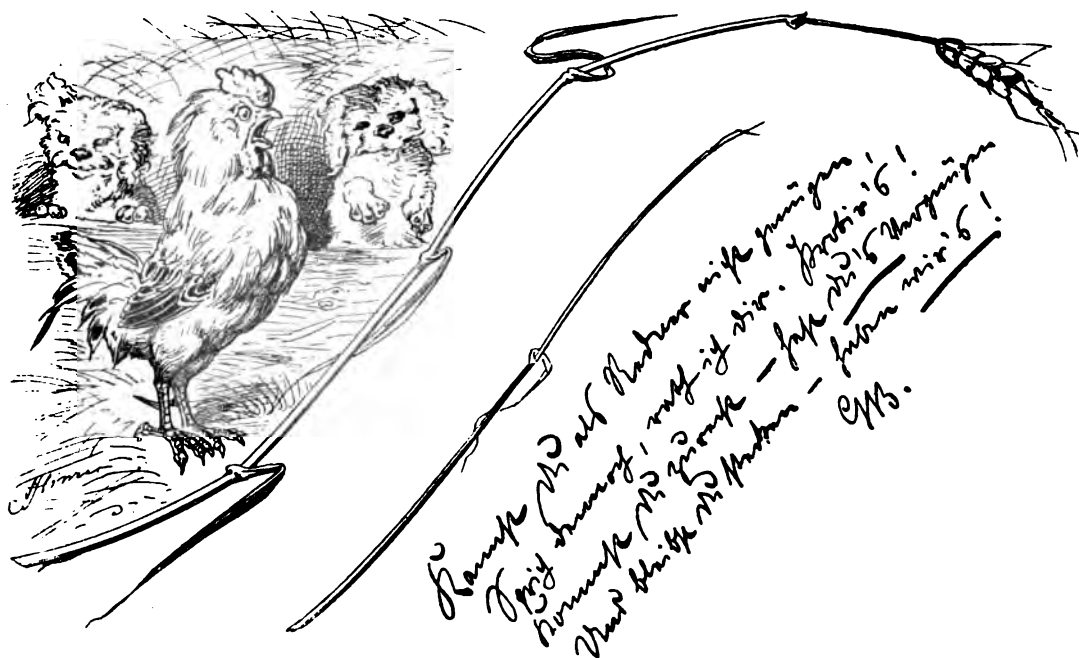 Kannst Du als Redner nicht genügen!
Sprich dennoch, rath ich dir. Probir's!
Kommst Du zurecht – hast Du's Vergnügen
Und bleibst Du stecken – haben wir's!